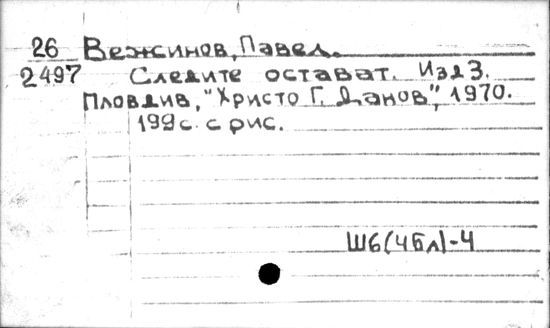 26 Вежинов, Павел.
2497 Следите остават. Изд 3.
Пловдив, "Христо Г. Данов", 1970.
199с. с рис.
Ш6(4Бл)-4